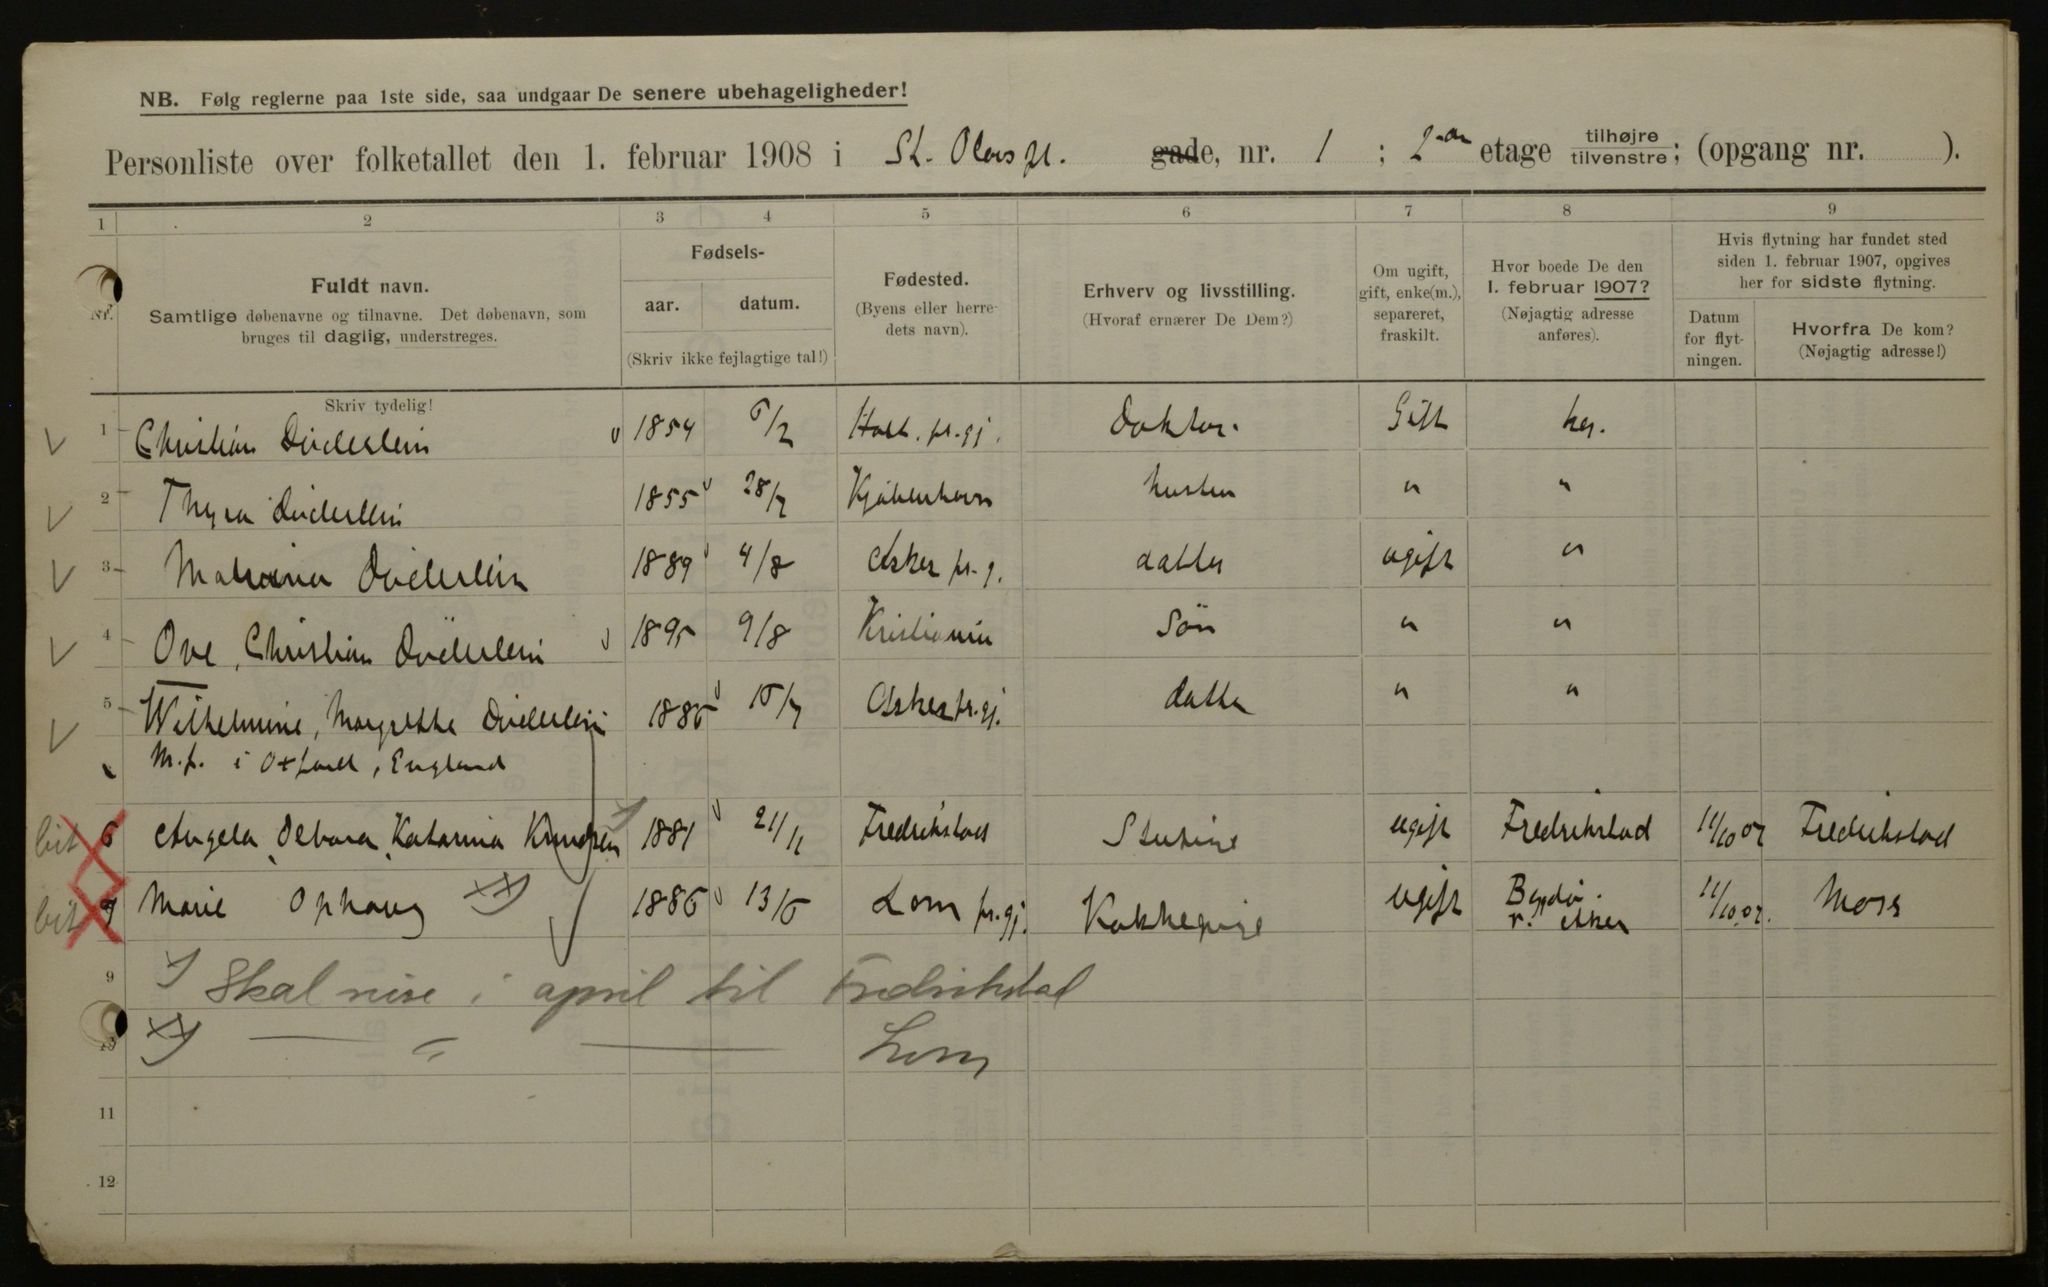 NB. Følg reglerne paa 1ste side, saa undgaar De senere ubehageligheder!
Personliste over folketallet den 1. februar 1908 i St. Olavs pl. gade, nr. 1 ; 2-en etage tilhøjre tilvenstre; (opgang nr. ).
1 2 3 4 5 6 7 8 9
Nr.
Fuldt navn.
Samtlige døbenavne og tilnavne. Det døbenavn, som
bruges til daglig, understreges.
Skriv tydelig!
Fødsels-
aar. datum.
(Skriv ikke fejlagtige tal!)
Fødested.
(Byens eller herre-
dets navn).
Erhverv og livsstilling.
(Hvoraf ernærer De Dem?)
Om ugift,
gift, enke(m.),
separeret,
fraskilt.
Hvor boede De den
1. februar 1907?
(Nøjagtig adresse
anføres).
Hvis flytning har fundet sted
siden 1. februar 1907, opgives
her for sidste flytning.
Datum
for flyt-
ningen.
Hvorfra De kom?
(Nøjagtig adresse!)
1 Christian Döderlein 1854 6/2 Holt. pr.gj. Doktor. Gift her.
2 Thyra Döderlein 1855 28/7 Kjöbenhavn hustru " "
3 Döderlein 1889 4/8 Asker pr.g. datter ugift "
4 Ove, Christian Döderlein 1895 9/8 Kristiania Sön " "
5 Wilhelmine, Margrethe Döderlein 1886 15/7 Asker pr.gj. datter " "
M.p. i Oxford, England
bit 6 Angela, Debora, Katarina Knudsen 1881 21/11 Fredrikstad Stuepige ugift Fredrikstad 11/10 07 Fredrikstad
bit 7 Marie Ophaug xx) 1886 13/6 Lom pr.gj. Kokkepige ugift Bygdø. v. Aker 11/10.07. Moss
9 x) Skal reise i april til Fredrikstad
10 xx) — " — Lom
11
12